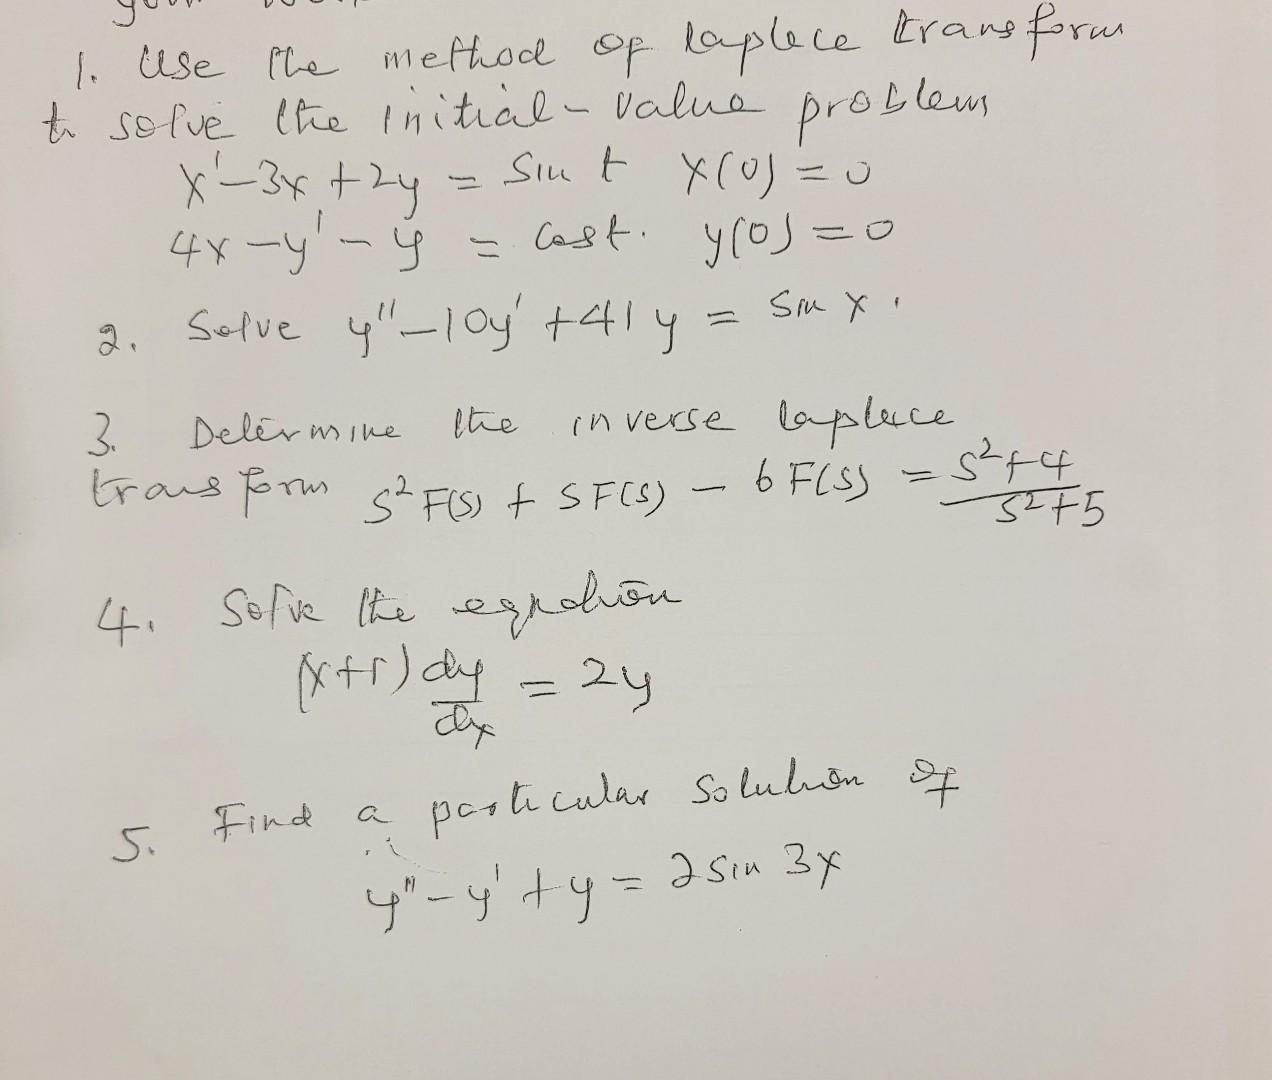 1. Use the method of laplace transform
to solve the initial-value problem
x' - 3x + 2y = sin t x(0) = 0
4x - y' - y = cos t. y(0) = 0
2. Solve y'' - 10y' + 41y = sin x.
3. Determine the inverse laplace
transform s²F(s) + sF(s) - 6F(s) = (s²+4)/(s²+5)
4. Solve the equation
(x+1) dy/dx = 2y
5. Find a particular solution of
y'' - y' + y = 2 sin 3x